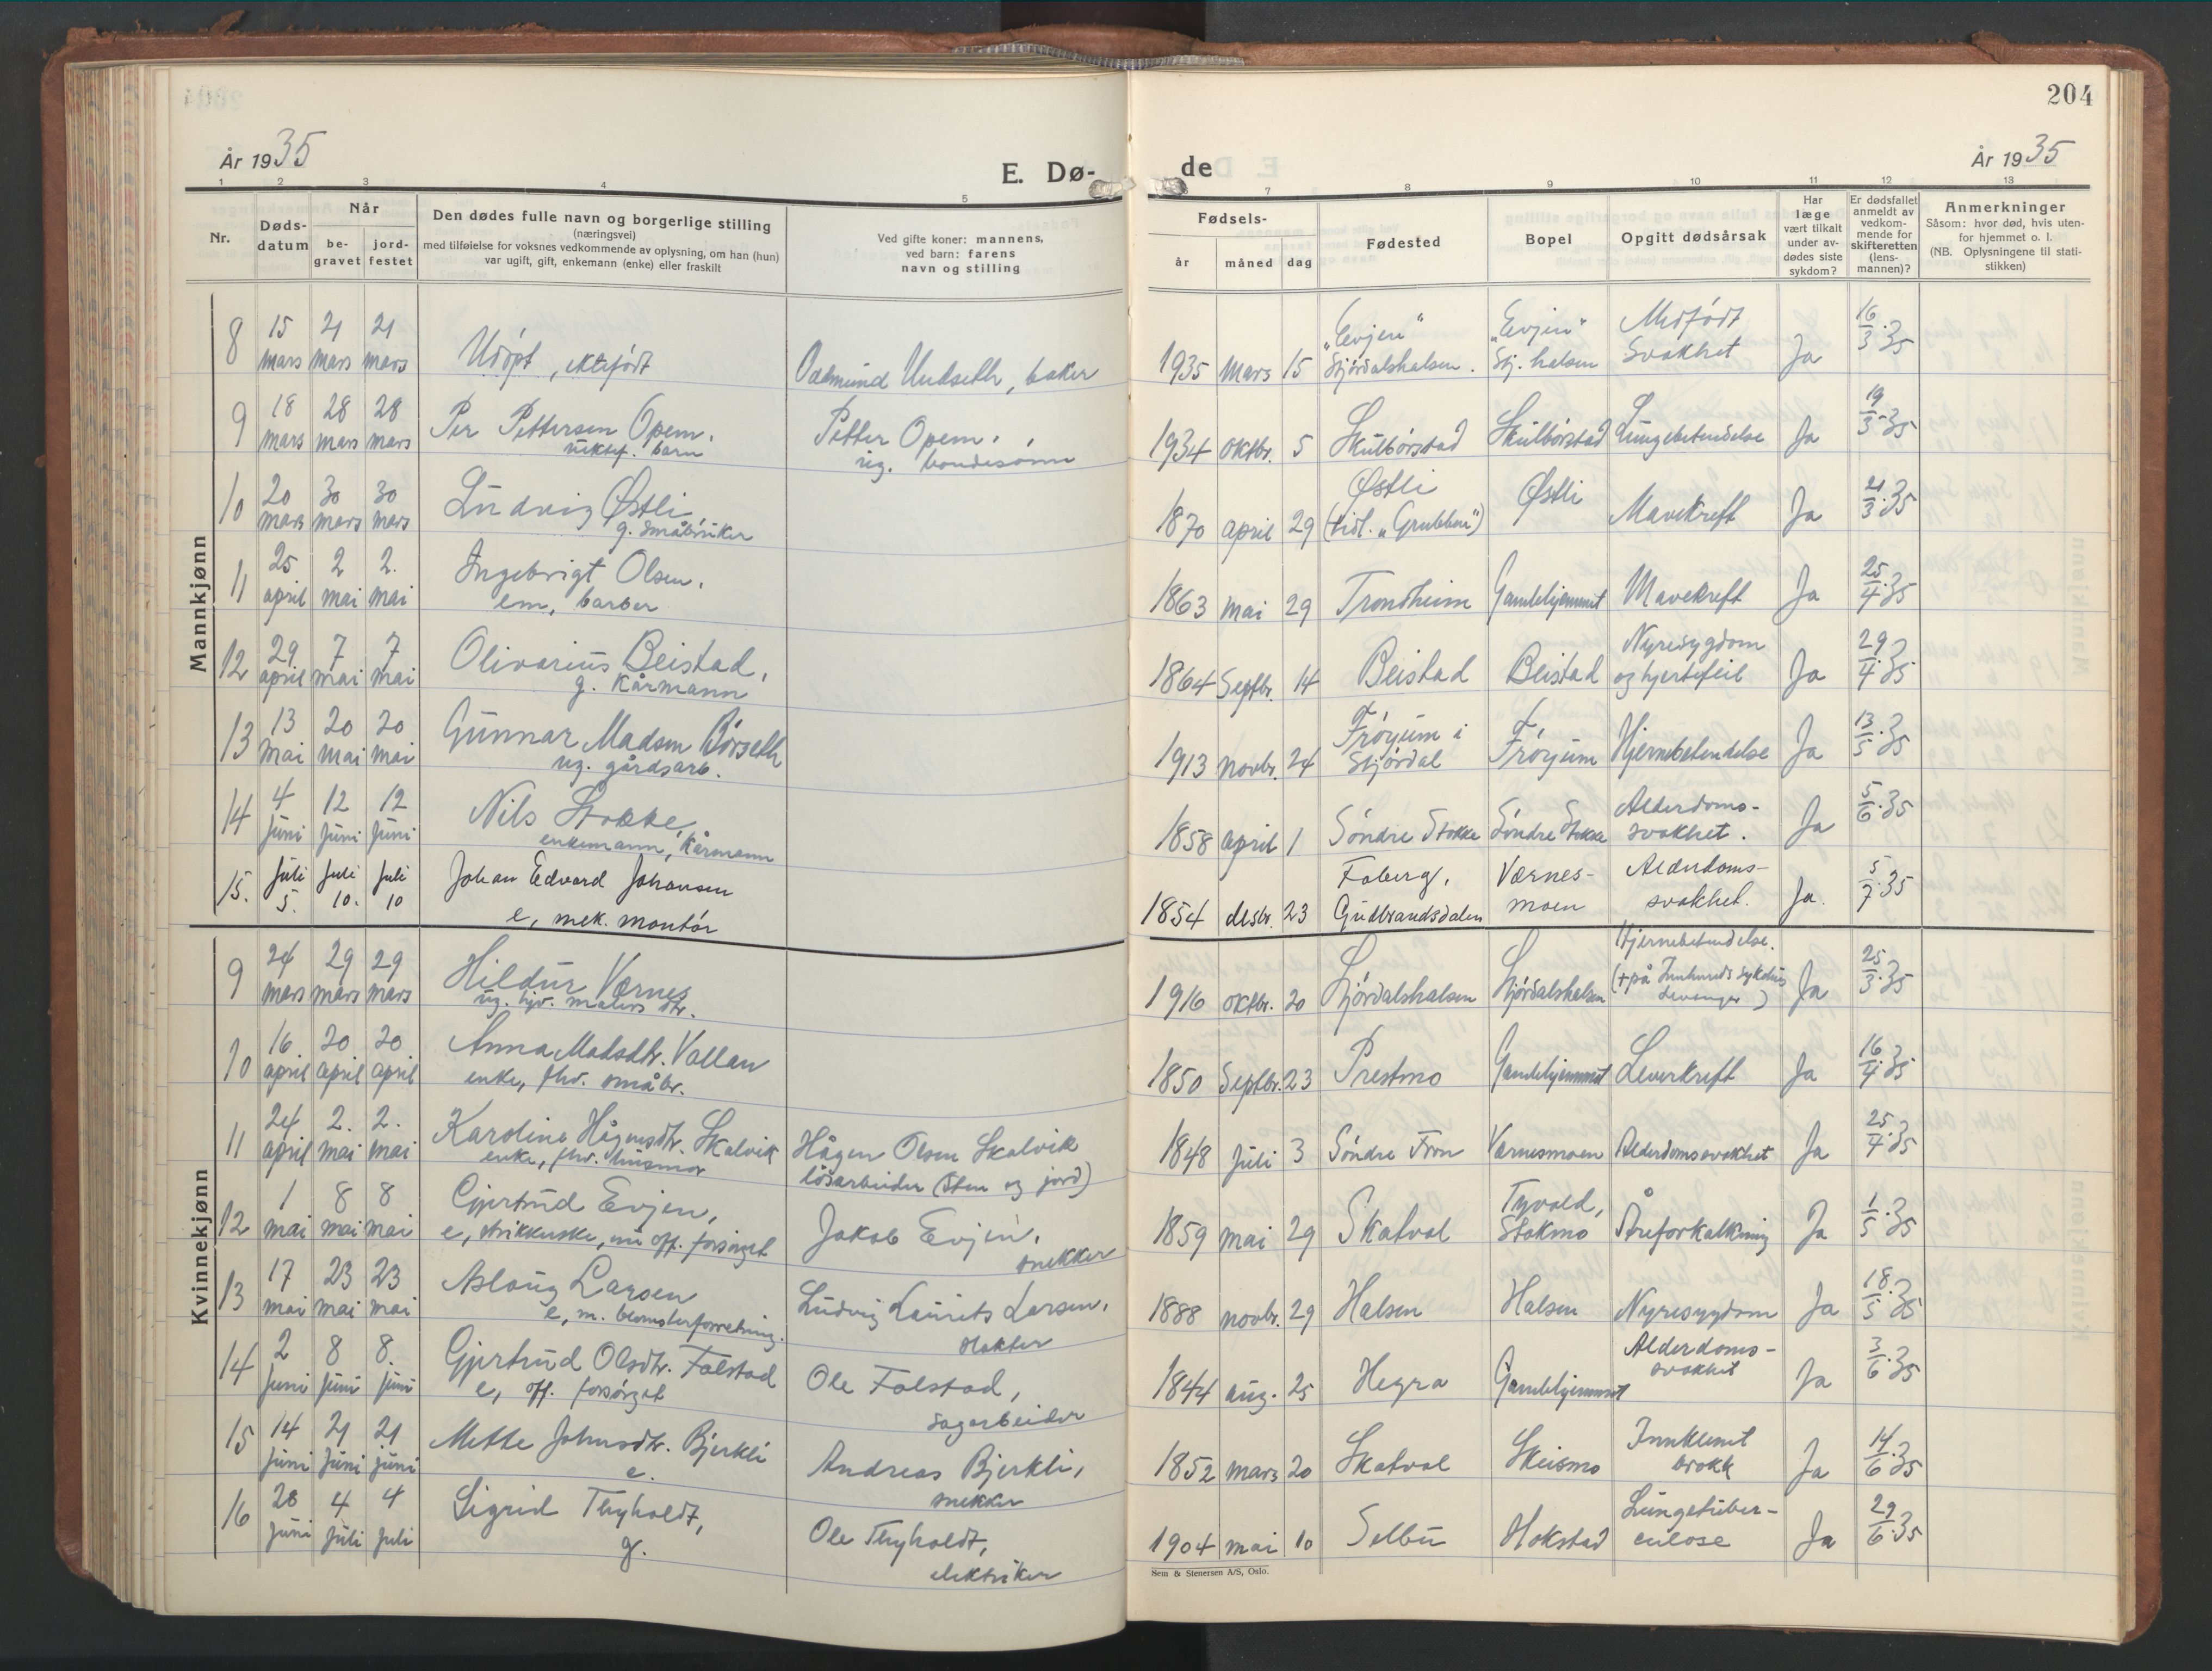 204
År 1935
E. Dø-
de
År 1935
1 2 3 4 5 7 8 9 10 11 12 13
Nr.
Døds-
datum
Når
be-
gravet
jord-
festet
Den dødes fulle navn og borgerlige stilling
(næringsvei)
med tilføielse for voksnes vedkommende av oplysning, om han (hun)
var ugift, gift, enkemann (enke) eller fraskilt
Ved gifte koner: mannens,
ved barn: farens
navn og stilling
Fødsels-
år måned dag
Fødested
Bopel
Opgitt dødsårsak
Har
læge
vært tilkalt
under av-
dødes siste
sykdom?
Er dødsfallet
anmeldt av
vedkom-
mende for
skifteretten
(lens-
mannen)?
Anmerkninger
Såsom: hvor død, hvis uten-
for hjemmet o. l.
(NB. Oplysningene til stati-
stikken)
Mannkjønn
8 15 mars 21 mars 21 mars Udøpt, ektefødt Oddmund Undseth, baker 1935 mars 15 "Evjen" Stjørdalshalsen. "Evjen" Stj. halsen Medfødt svakhet Ja 16/3.35
9 18 mars 28 mars 28 mars Per Pettersen Opem. uektef. barn Petter Opem. ug. bondesønn 1934 oktbr. 5 Skulbørstad Skulbørstad Lungebetendelse Ja 19/3.35
10 20 mars 30 mars 30 mars Ludvig Østli, g. småbruker 1870 april 29 Østli (tidl. "Grubben") Østli Mavekreft Ja 21/3.35
11 25 april 2 mai 2. mai Ingebrigt Olsen. em, barber 1863 mai 29 Trondheim Gamlehjemmet Mavekreft Ja 25/4.35
12 29 april 7 mai 7 mai Olivarius Beistad, g. kårmann 1864 Septbr. 14 Beistad Beistad Nyresygdom og hjertefeil Ja 29/4.35
13 13 mai 20 mai 20 mai Gunnar Madsen Børseth ug. gårdsarb. 1913 novbr. 24 Frøyum i Stjørdal Frøyum Hjernebetendelse Ja 13/5.35
14 4 juni 12 juni 12 juni Nils Stokke, enkemann, kårmann 1858 april 1 Søndre Stokke Søndre Stokke Alderdoms- svakhet. Ja 5/6.35
15. juli 5. juli 10. juli 10 Johan Edvard Johansen e, mek. montør 1854 desbr. 23 Faberg, Gudbrandsdalen Værnes- moen Alderdoms- svakhet. Ja. 5/7.35
Kvinnekjønn
9 24 mars 29 mars 29 mars Hildur Værnes ug. hjv. malers dtr. 1916 oktbr. 20 Stjørdalshalsen Stjørdalshalsen Hjernebetendelse. (+ på Innherreds sykehus Levanger) Ja 25/3.35
10 16. april 20 april 20 april Anna Matsdtr. Vollan enke, fhv. småbr. 1850 Septbr. 23 Prestmo Gamlehjemmet Leverkreft Ja 16/4.35
11 24 april 2. mai 2. mai Karoline Hågensdtr. Skalvik enke, fhv. husmor Hågen Olsen Skalvik løsarbeider (sten og jord) 1848 juli 3 Søndre Fron Værnesmoen Alderdomssvakhet Ja 25/4.35
12 1 mai 8 mai 8 mai Gjertrud Evjen, e, strikkerske, nu off. forsørget Jakob Evjen, snekker 1859 mai 29 Skatval Tyvold, Stokmo Åreforkalkning Ja 1/5.35
13 17 mai 23 mai 23 mai Aslaug Larsen e, m. blomsterforretning. Ludvig Laurits Larsen, slakter 1888 novbr. 29 Halsen Halsen Nyresygdom Ja 18/5.35
14 2 juni 8 juni 8. juni Gjertrud Olsdtr. Folstad e, off. forsørget Ole Folstad, sagarbeider 1844 aug. 25 Hegra Gamlehjemmet Alderdoms- svakhet Ja 3/6.35
15 14 juni 21 juni 21 juni Mette Johnsdtr. Bjerkli e. Andreas Bjerkli, snekker 1852 mars 20 Skatval Skeismo Innklemt brokk Ja 14/6.35
16 28 juni 4 juli 4 juli Sigrid Thyholdt, g. Ole Thyholdt, elektriker 1904 mai 10 Selbu Hokstad Lungetuber- culose Ja 29/6.35
Sem & Stenersen A/S, Oslo.